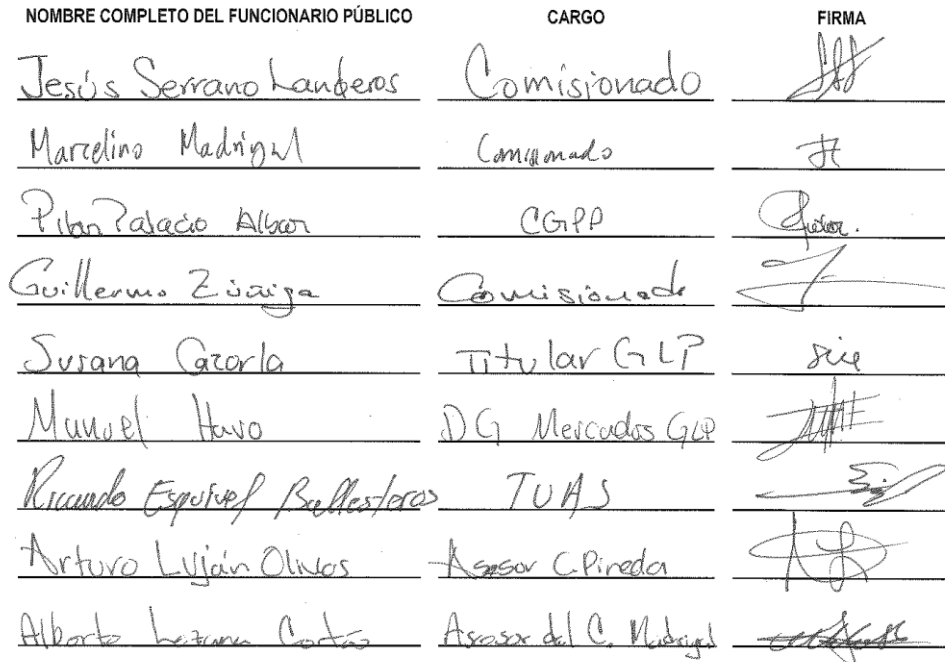 NOMBRE COMPLETO DEL FUNCIONARIO PÚBLICO CARGO FIRMA
Jesús Serrano Landeros Comisionado
Marcelino Madrigal Comisionado
Pilar Palacio Albor CGPP
Guillermo Zúñiga Comisionado
Susana Cazorla Titular GLP
Manuel Haro DG Mercados GLP
Ricardo Esquivel Ballesteros TUAS
Arturo Luján Olivos Asesor C. Pineda
Alberto Cortés Asesor del C. Madrigal